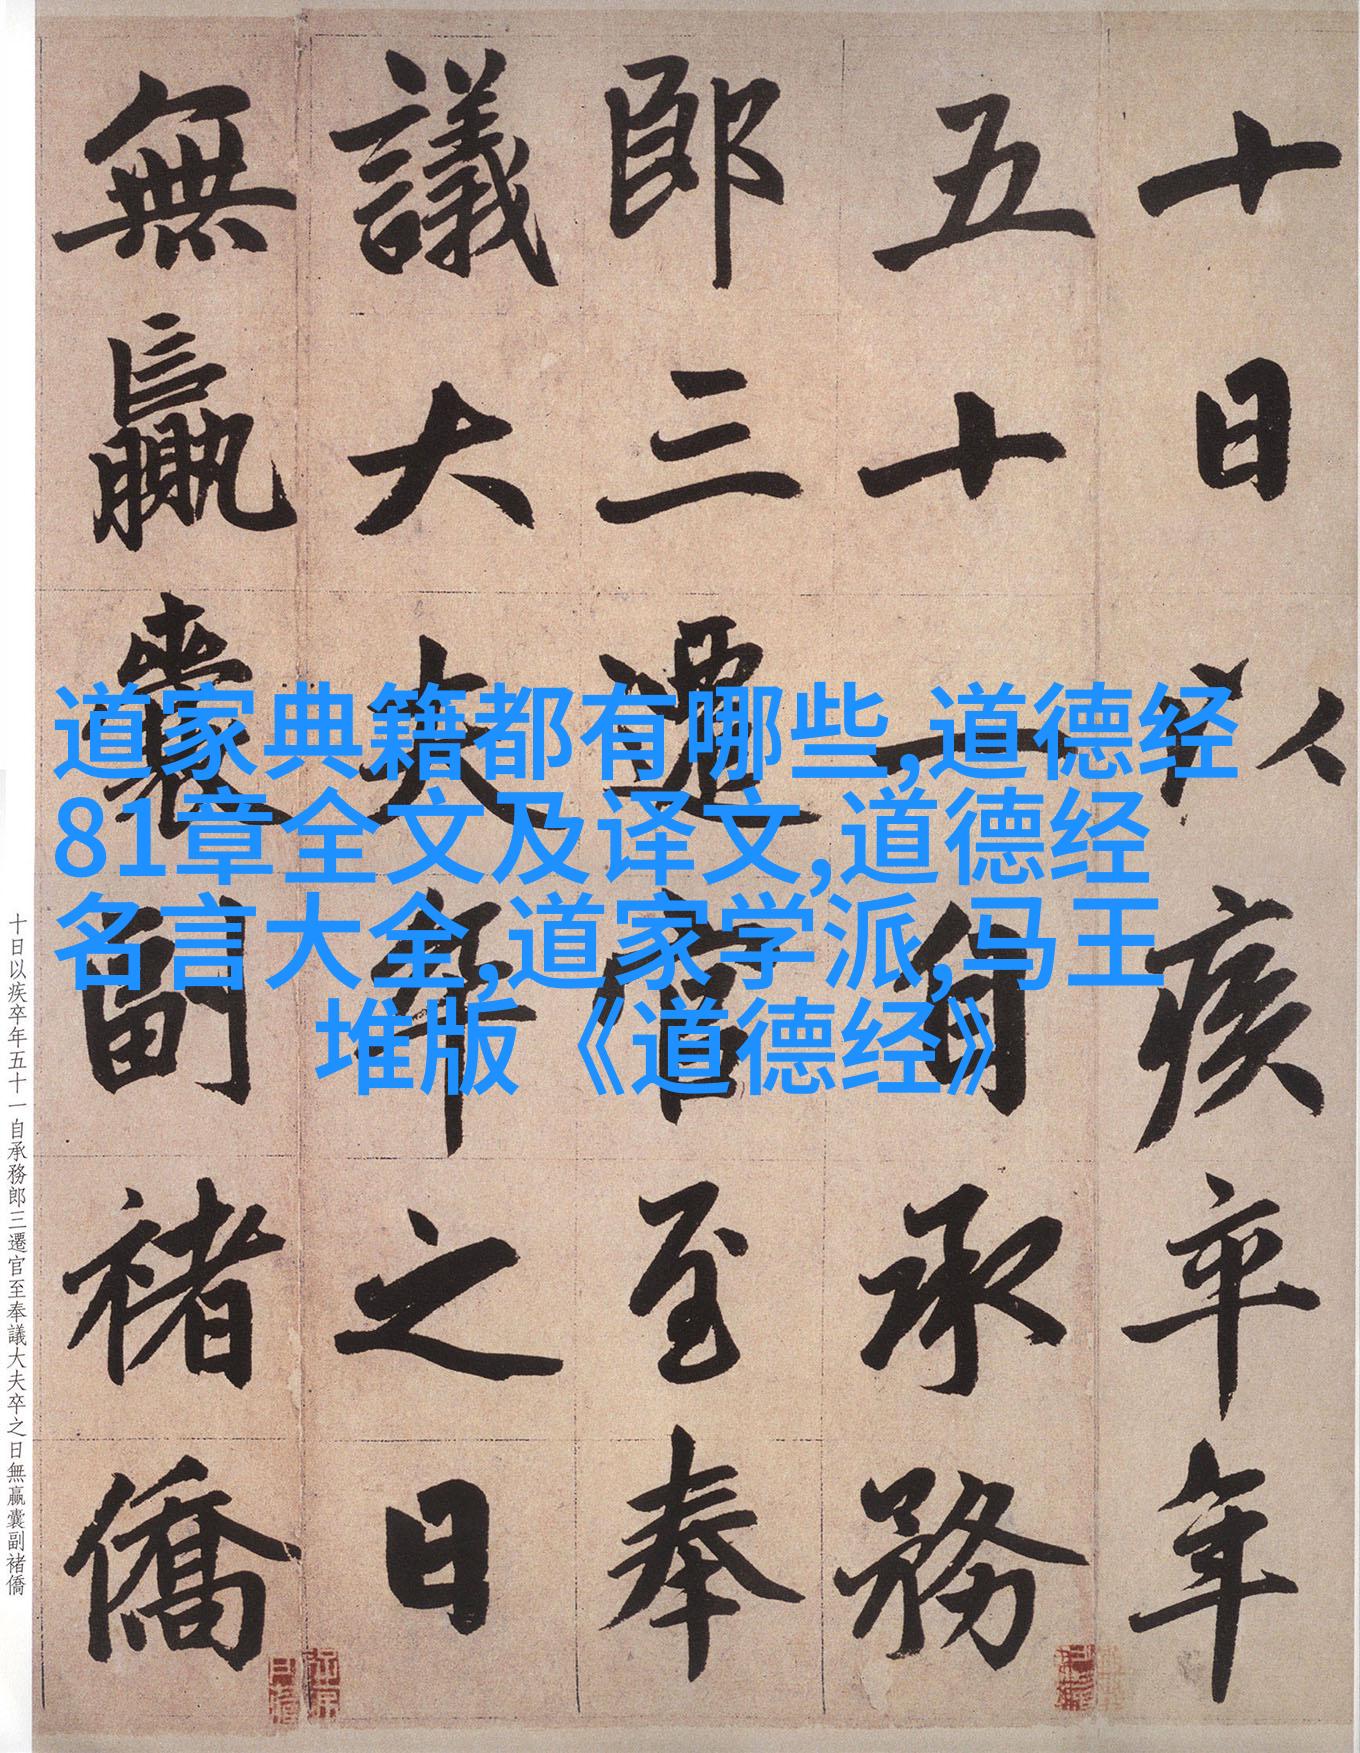 十日以疾卒年
五十一自承務
郎三遷官至奉
議大夫卒之日
無贏囊副褚僑
十日以疾卒年五十一自承務郎三遷官至奉議大夫卒之日無贏囊副褚僑
道家典籍都有哪些,道德经
81章全文及译文,道德经
名言大全,道家学派,马王
堆版《道德经》